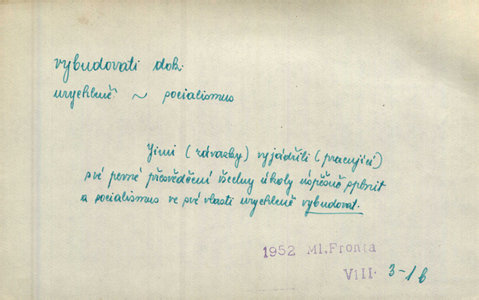 vybudovati dok.
urychleně ~ socialismus
Jimi (závazky) vyjádřili (pracující)
své pevné přesvědčení všechny úkoly úspěšně splnit
a socialismus ve své vlasti urychleně vybudovat.
1952 Ml. Fronta
VIII. 3-1b